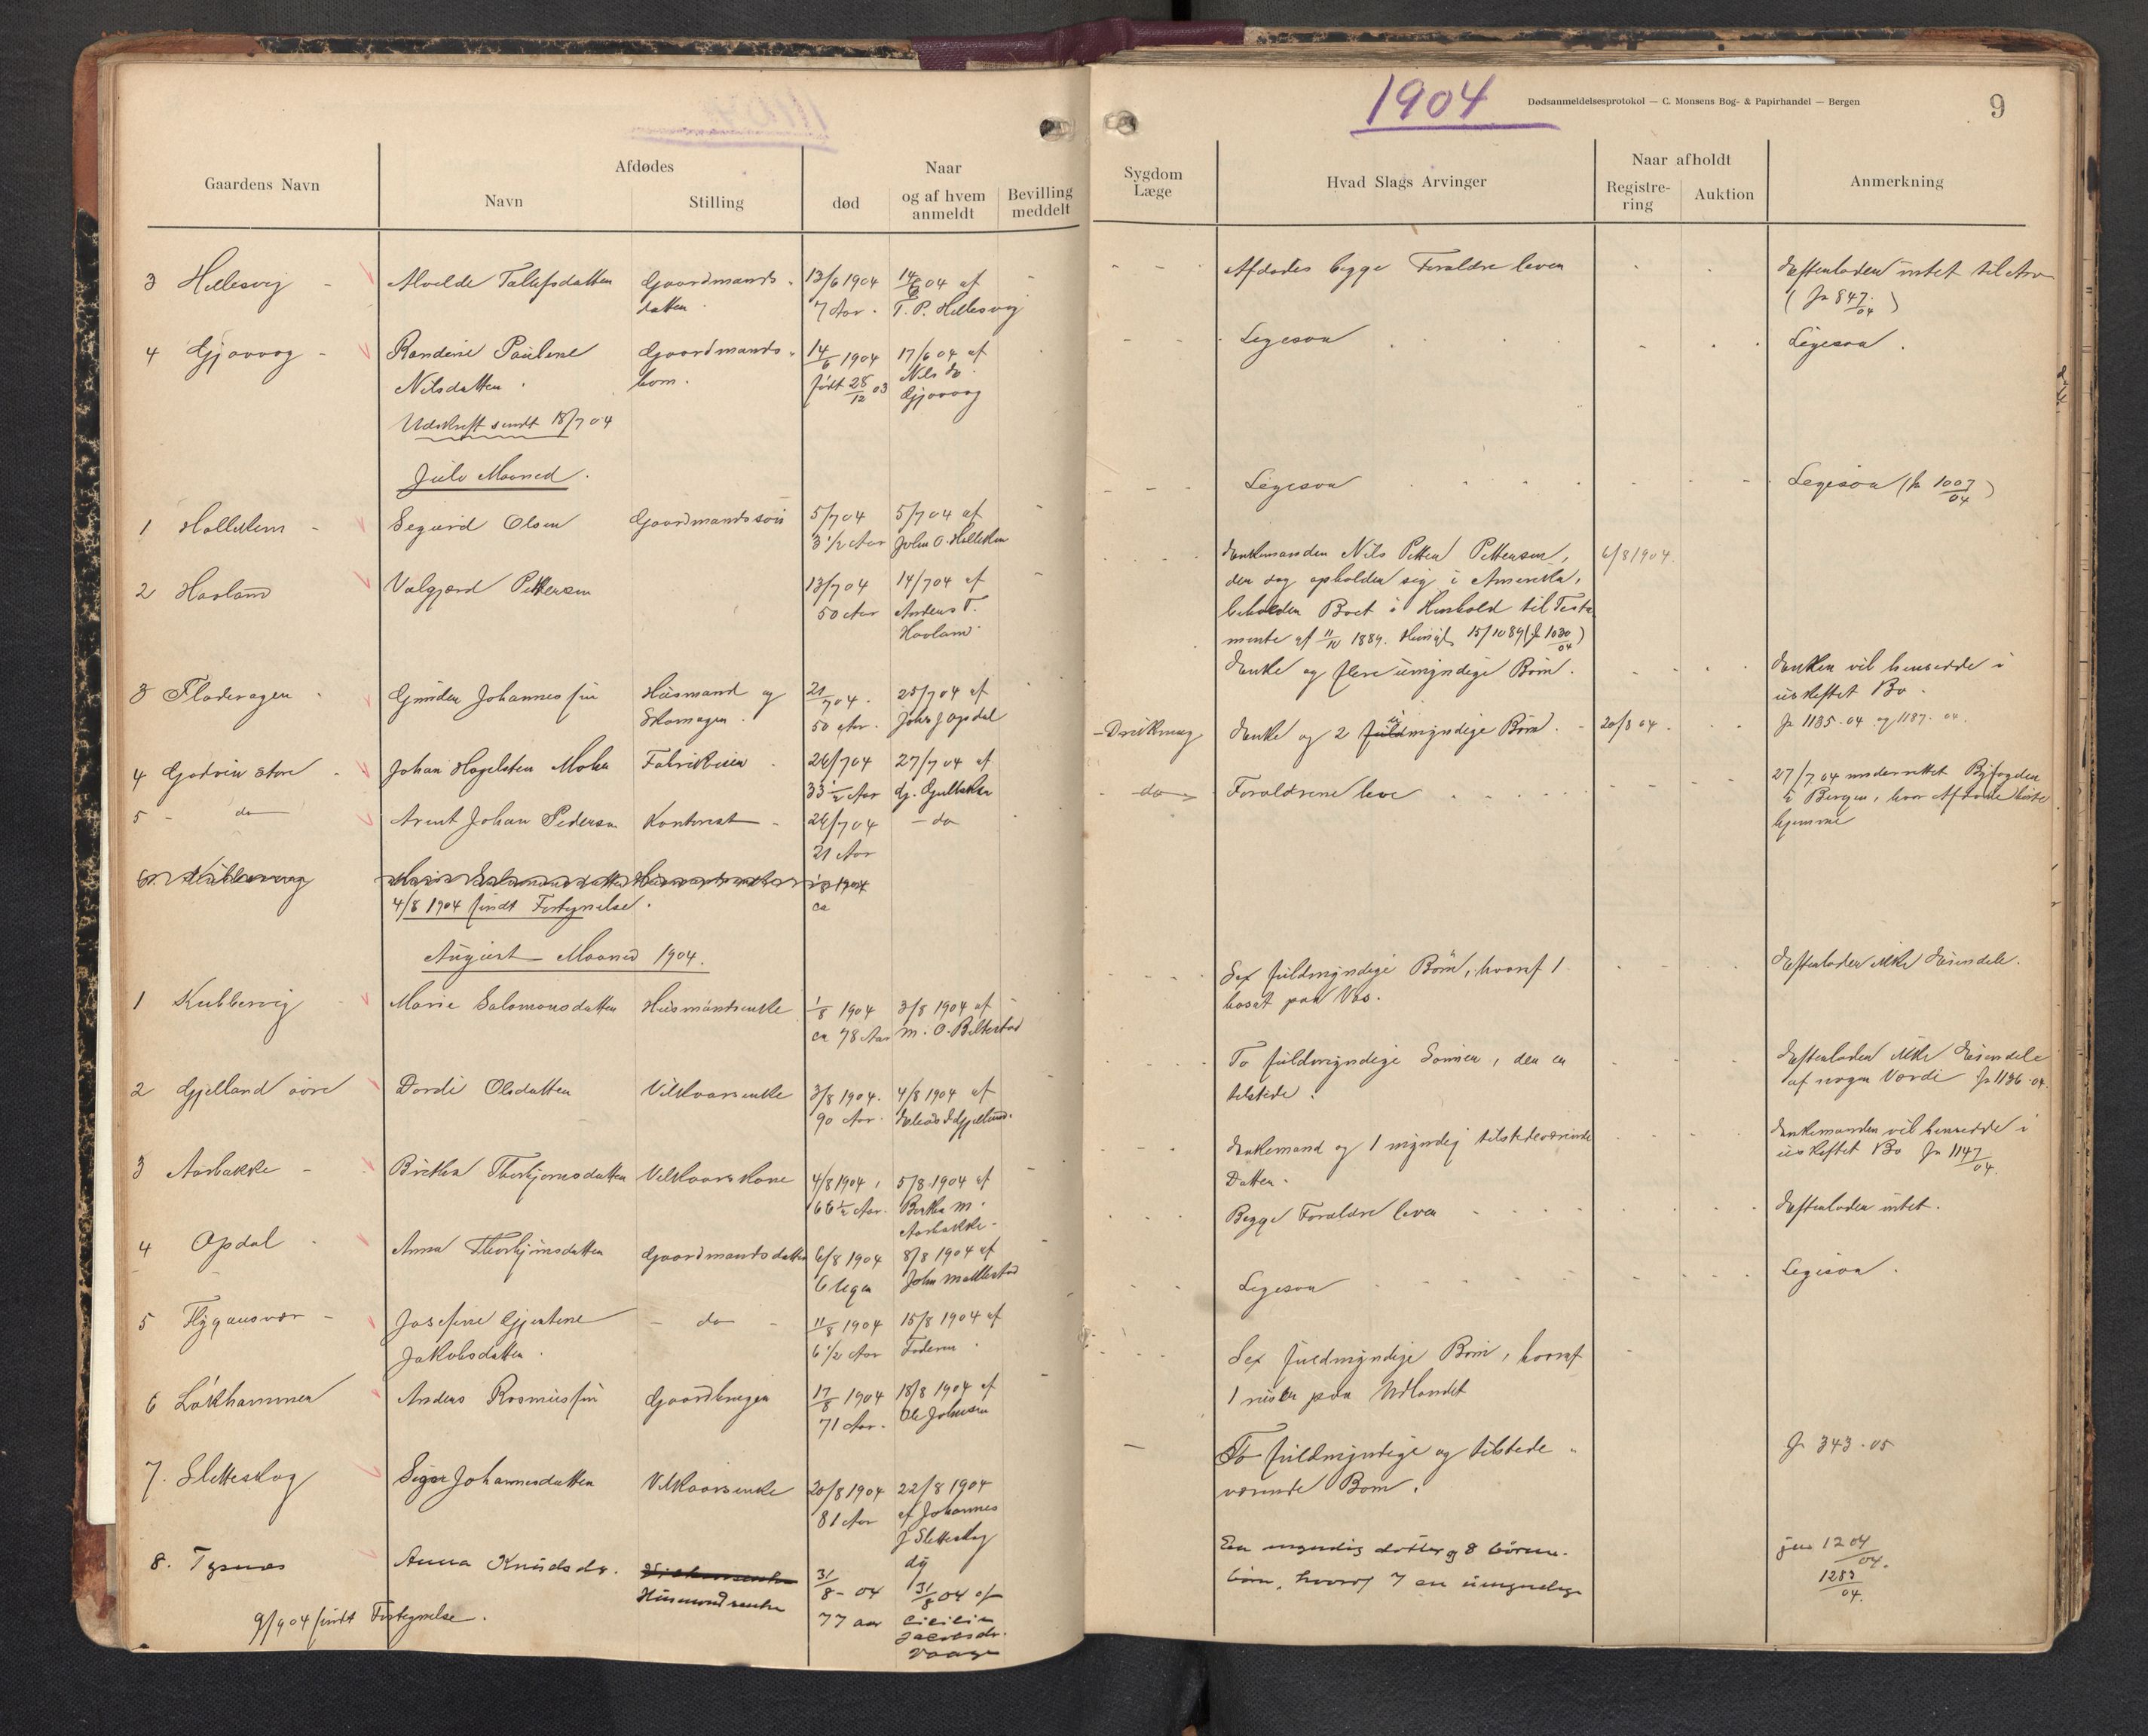 1904
Dødsanmeldelsesprotokol — C. Monsens Bog- & Papirhandel — Bergen
9
Gaardens Navn
Afdødes
Navn
Stilling
Naar
død
og af hvem
anmeldt
Bevilling
meddelt
Sygdom
Læge
Hvad Slags Arvinger
Naar afholdt
Registre-
ring
Auktion
Anmerkning
3 Hellesvig
datter
13/6 1904
7 Aar
14/6 04 af
T. P. Hellesvig
Afdødes begge Foraldre lever
Efterlader intet til Arv
(Jr 847/04)
4 Gjøvaag
Randine Pauline
Nilsdatter
Gaardmands-
barn.
14/6 1904
født 28/12 03
17/6 04 af
Nils do
Gjøvaag
Ligesaa
Ligesaa.
Udskrift sendt 18/7 04
Juli Maaned.
1
Sigurd Olsen
Gaardmandssøn
5/7 04
3 1/2 Aar
5/7 04 af
John O.
Ligesaa
Ligesaa (Jr 1007/04)
2 Haaland
Valgjerd Pettersen
13/7 04
50 Aar
14/7 04 af
Anders T.
Haaland
Enkemanden Nils Petter Pettersen,
der sig opholder sig i Amerika,
beholder Boet i Henhold til Testa
mente af 11/10 1889. 15/10 89 (Jr 1030/04)
6/8 1904.
3 Fladevagen
Gunder Johannessøn
Husmand og
Skomager.
21/7 04.
50 Aar.
25/7 04 af
John J Opdal
Enke og flere umyndige Børn.
Enken vil hensidde i
uskiftet Bo.
Jr 1135.04 og 1187.04.
4 Godøen store
Johan Hagelsten
26/7 04
33 1/2 Aar
27/7 04 af
G.
Drukning
Enke og 2 fuld umyndige Børn.
20/8 04.
27/7 04 underrettet Byfogden
i Bergen, hvor Afdøde hørte
hjemme
5 do
Arent Johan Pedersen
Kontorist
26/7 04
21 Aar
do
do
Foraldrene leve
6
1904
ca
4/8 1904 sendt Fortegnelse.
August Maaned 1904.
1 Kubbervig
Marie Salomonsdatter
Husmandsenke
1/8 1904
ca 78 Aar
3/8 1904 af
M. O. Beltestad
Sex fuldmyndige Børn, hvoraf 1
bosat paa Vos.
Efterlader ikke Eiendele.
2 Gjelland øvre
Dordi Olsdatter
Vilkaarsenke
3/8 1904.
90 Aar.
4/8 1904 af
To fuldmyndige Sønner, den en
tilstede.
Efterlader ikke Eiendele
af nogen Værdi Jr 1136.04.
3 Aarbakke
Brita Thorbjørnsdatter
Vilkaarskone
4/8 1904,
66 1/2 Aar.
5/8 1904 af
M.
Aarbakke
Enkemand og 1 myndig tilstedeværende
Datter.
Enkemanden vil hensidde i
uskiftet Bo Jr 1147/04.
4 Opdal
Anna Thorbjørnsdatter
Gaardmandsdatter
6/8 1904
6 Uger
8/8 1904 af
John
Begge Foraldre lever
Efterlader intet.
5 Flygansvær
Josefine Gjertine
Jakobsdatter.
do
11/8 1904
6 1/2 Aar
15/8 1904 af
Faderen
Ligesaa
Ligesaa.
6 Løkhammer
Anders Rasmussøn
Gaardbruger
17/8 1904
71 Aar.
18/8 1904 af
Ole Johnsen
Sex fuldmyndige Børn, hvoraf
1 reiser paa Udlandet
7. Sletteskog
Johannesdatter
Vilkaarsenke
20/8 1904
81 Aar
22/8 1904
af Johannes
J Sletteskog
To fuldmyndige og tilstede-
værende Børn.
Jr 343.05
8. Tysnes
Anna Knudsdr.
Husmandsenke
31/8 - 04
77 aar
31/8 04 af
Cicilie
Jacobsdr.
Vaage
En myndig datter og 8 børne-
børn, hvoraf 7 er umyndige
jnr 1204/04.
1283/04.
9/9 04 sendt Fortegnelse.